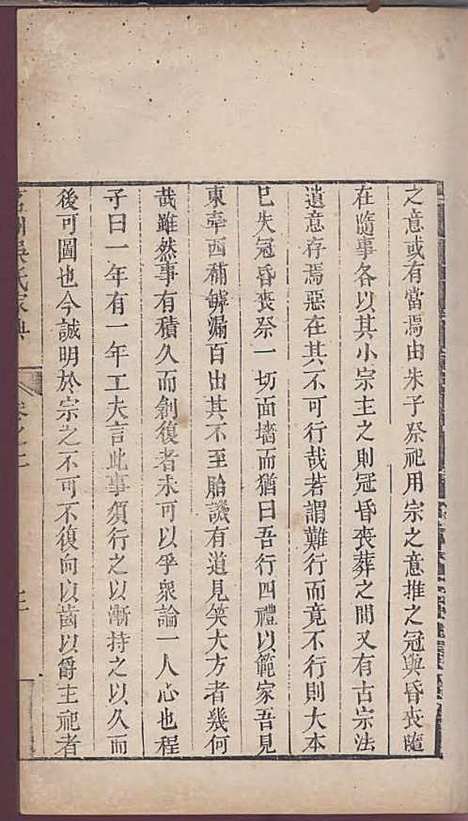 之意或有當焉由朱子祭祀用宗之意推之冠與昏喪隨
在隨事各以其小宗主之則冠昏喪葬之間又有古宗法
遺意存焉惡在其不可行哉若謂難行而竟不行則大本
已失冠昏喪祭一切面墻而猶曰吾行四禮以範家吾見
東牽西補罅漏百出其不至貽譏有道見笑大方者幾何
哉雖然事有積久而創復者未可以孚衆論一人心也程
子曰一年有一年工夫言此事須行之以漸持之以久而
後可圖也今誠明於宗之不可不復向以齒以爵主祀者
吳氏家典